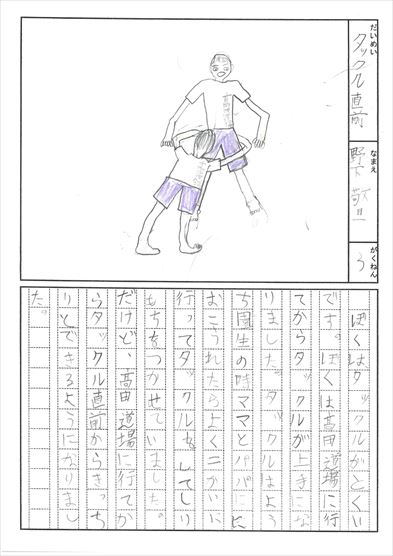 だいめい
タックル直前
なまえ
野下
がくねん
3
ぼくは、タックルがとくい
です。ぼくは高田道場に行
てからタックルが上手にな
りました。タックルはよう
ち園生の時ママとパパに
おこられたらよくニかいに
行ってタックルをしてしり
もちをつかせていました。
だけど、高田道場に行てか
らタックル直前からきっち
りとできるようになりまし
た。